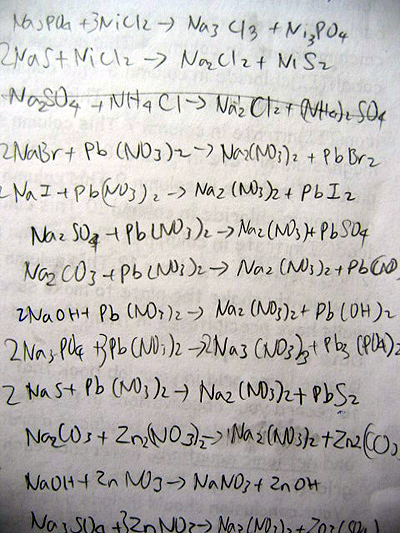 Na3PO4 + 3NiCl2 → Na3Cl3 + Ni3PO4
2NaS + NiCl2 → Na2Cl2 + NiS2
Na2SO4 + NH4Cl → Na2Cl2 + (NH4)2SO4
2NaBr + Pb(NO3)2 → Na2(NO3)2 + PbBr2
2NaI + Pb(NO3)2 → Na2(NO3)2 + PbI2
Na2SO4 + Pb(NO3)2 → Na2(NO3) + PbSO4
Na2CO3 + Pb(NO3)2 → Na2(NO3)2 + Pb(
2NaOH + Pb(NO3)2 → Na2(NO3)2 + Pb(OH)2
2Na3PO4 + 3Pb(NO3)2 → 2Na3(NO3)3 + Pb3(PO4)2
2NaS + Pb(NO3)2 → Na2(NO3)2 + PbS2
Na2CO3 + Zn2(NO3)2 → Na2(NO3)2 + Zn2(CO3
NaOH + ZnNO3 → NaNO3 + ZnOH
+ 3ZnNO3 →